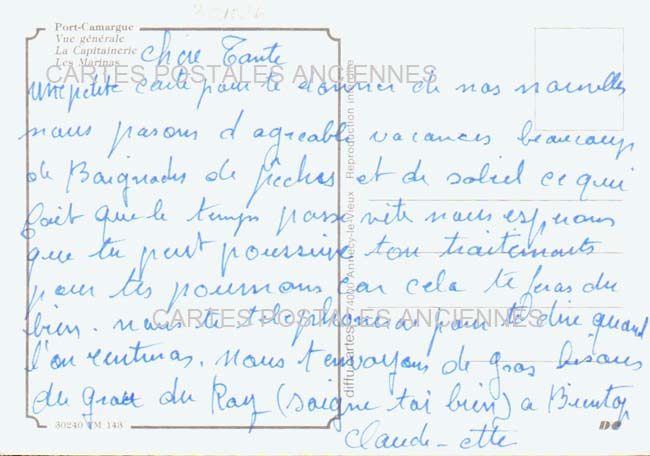 Port-Camargue
Vue générale
La Capitainerie
Les Marinas
Chère Tante
CARTES POSTALES ANCIENNES
une petite carte pour te donner de nos nouvelles
nous pasons d agreable vacances beaucoup
de Baignades de pêches et de soleil ce qui
fait que le temps passe vite nous esperons
que tu peut poussuive ton traitements
pour tes poumons car cela te feras du
bien. nous te téléphonerai pour te dire quand
CARTES POSTALES ANCIENNES
l'on rentreras. nous t'envoyons de gros bisous
du du (soigne toi bien) a Bientot
Claude-ette
30240 143
Annecy-le-Vieux Reproduction interdite